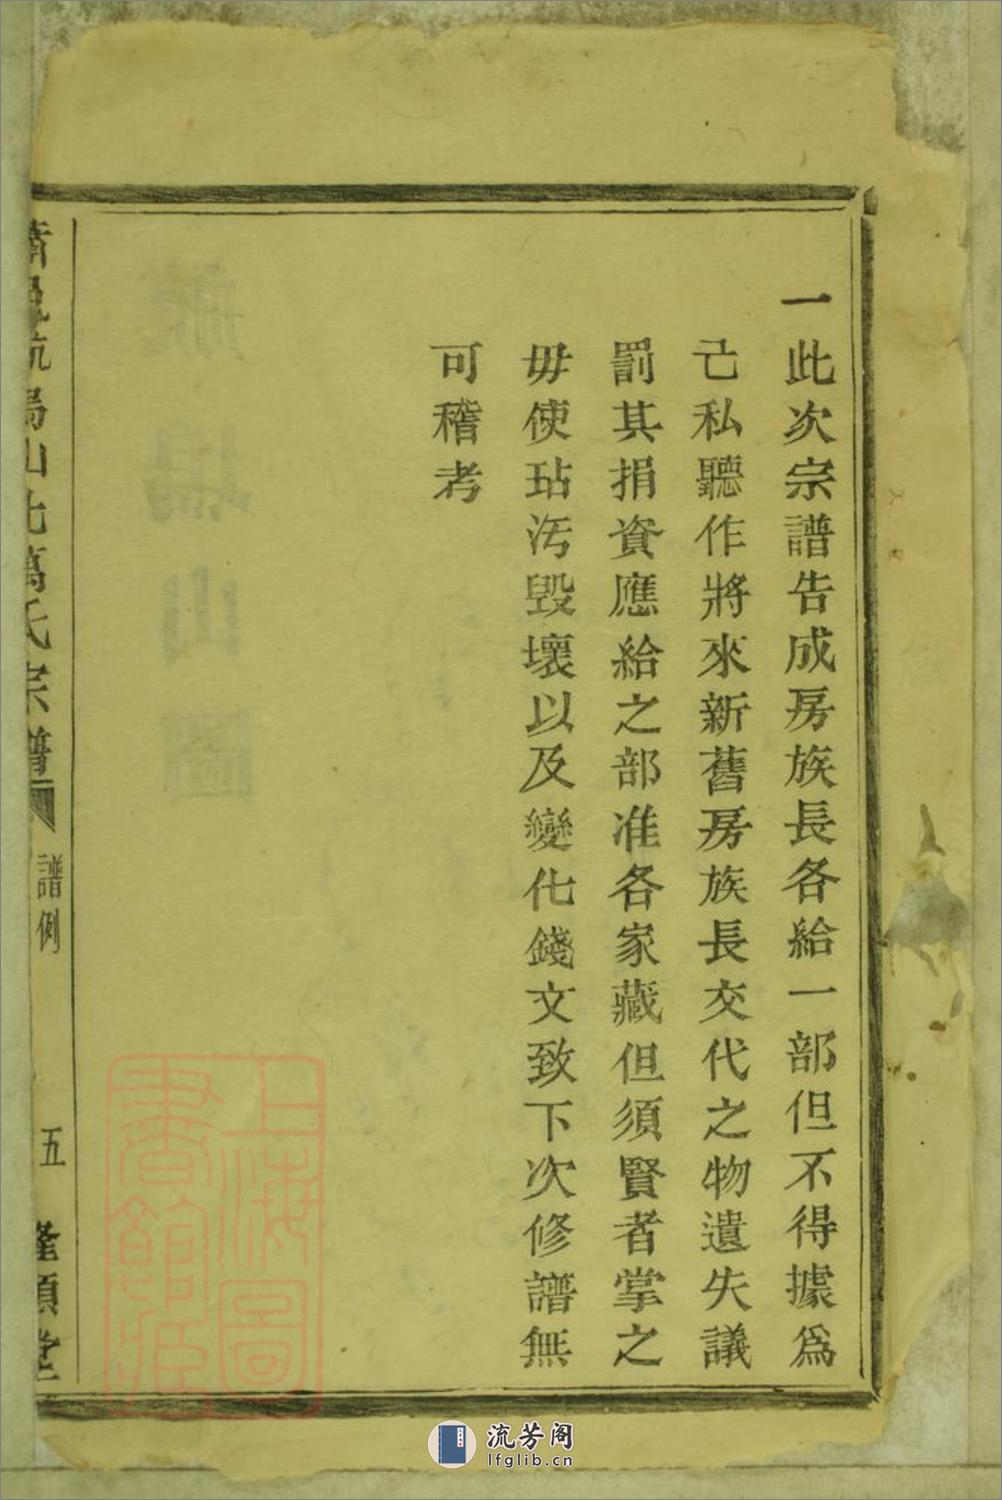 一此次宗譜告成房族長各給一部但不得據爲
己私聽作將來新舊房族長交代之物遺失議
罰其捐資應給之部准各家藏但須賢者掌之
毋使玷汚毀壞以及變化錢文致下次修譜無
可稽考
蕭邑航塢山北萬氏宗譜
譜例
五
隆順堂
上海圖書館藏
流芳阁
lfglib.cn